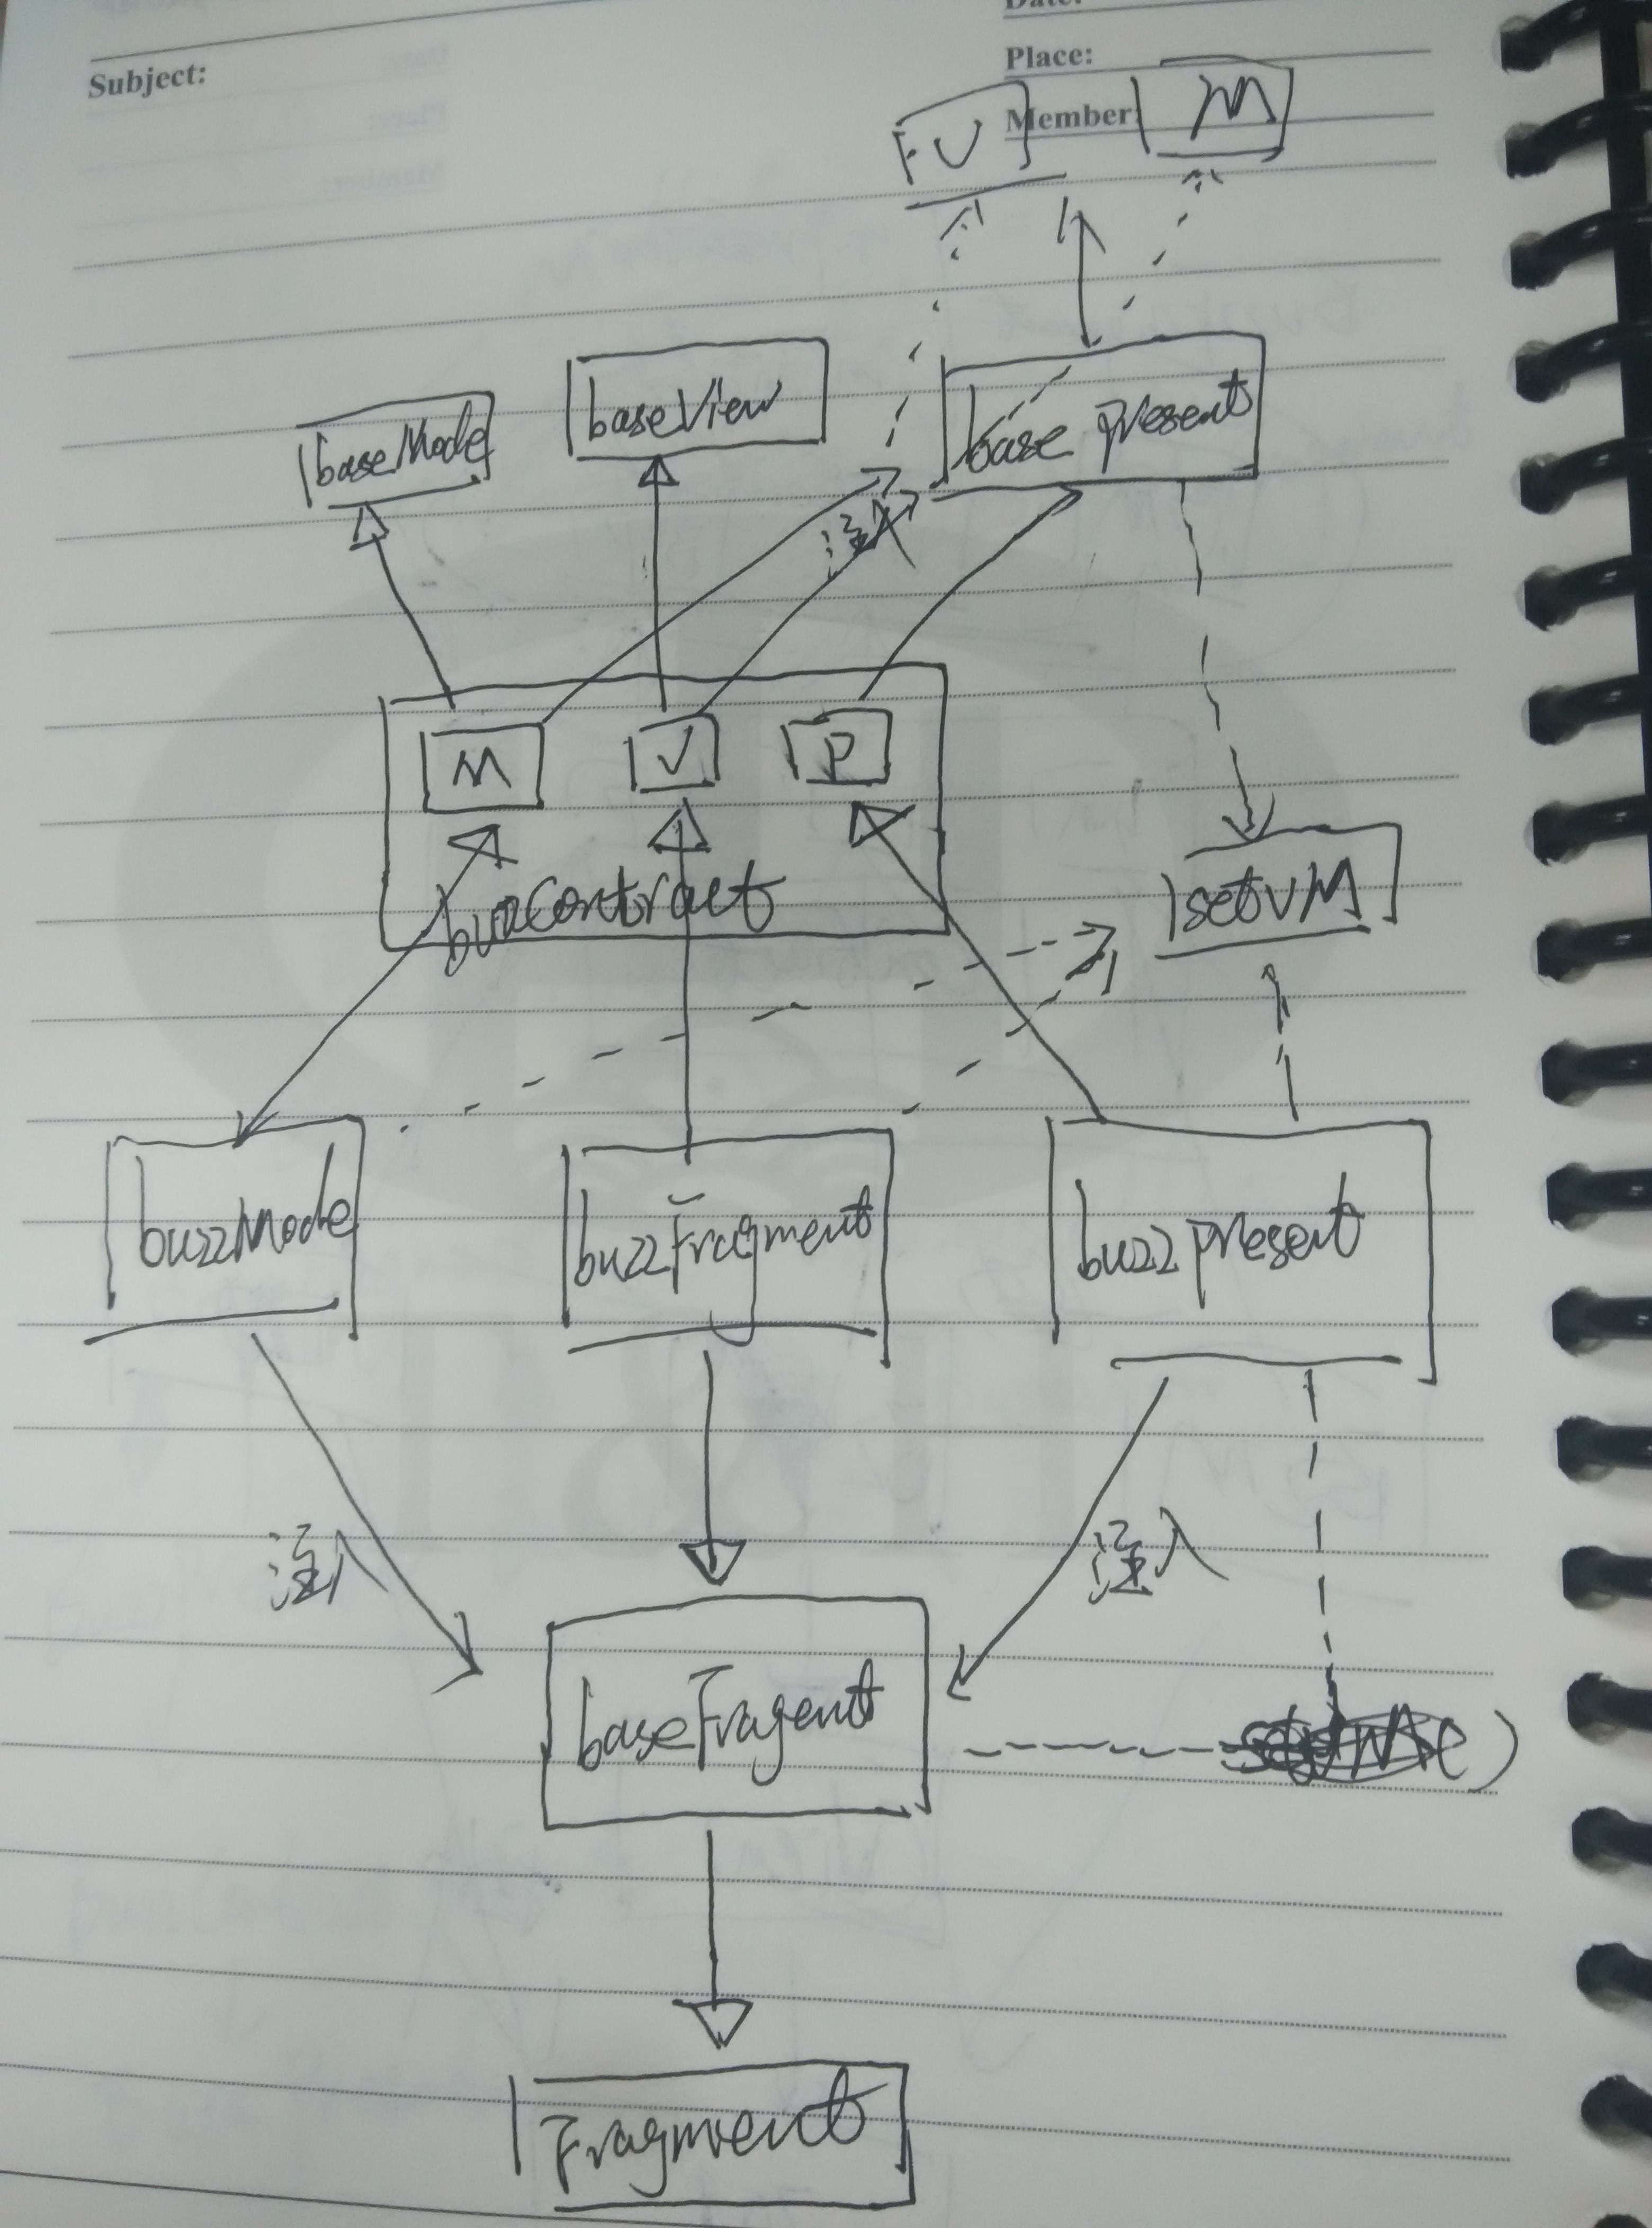 Date:
Subject:
Place:
Member:
M
V
baseMode
baseView
base present
注入
M
V
P
buzzContract
setVM
buzzMode
buzzFragment
buzzpresent
注入
注入
baseFragent
Fragment